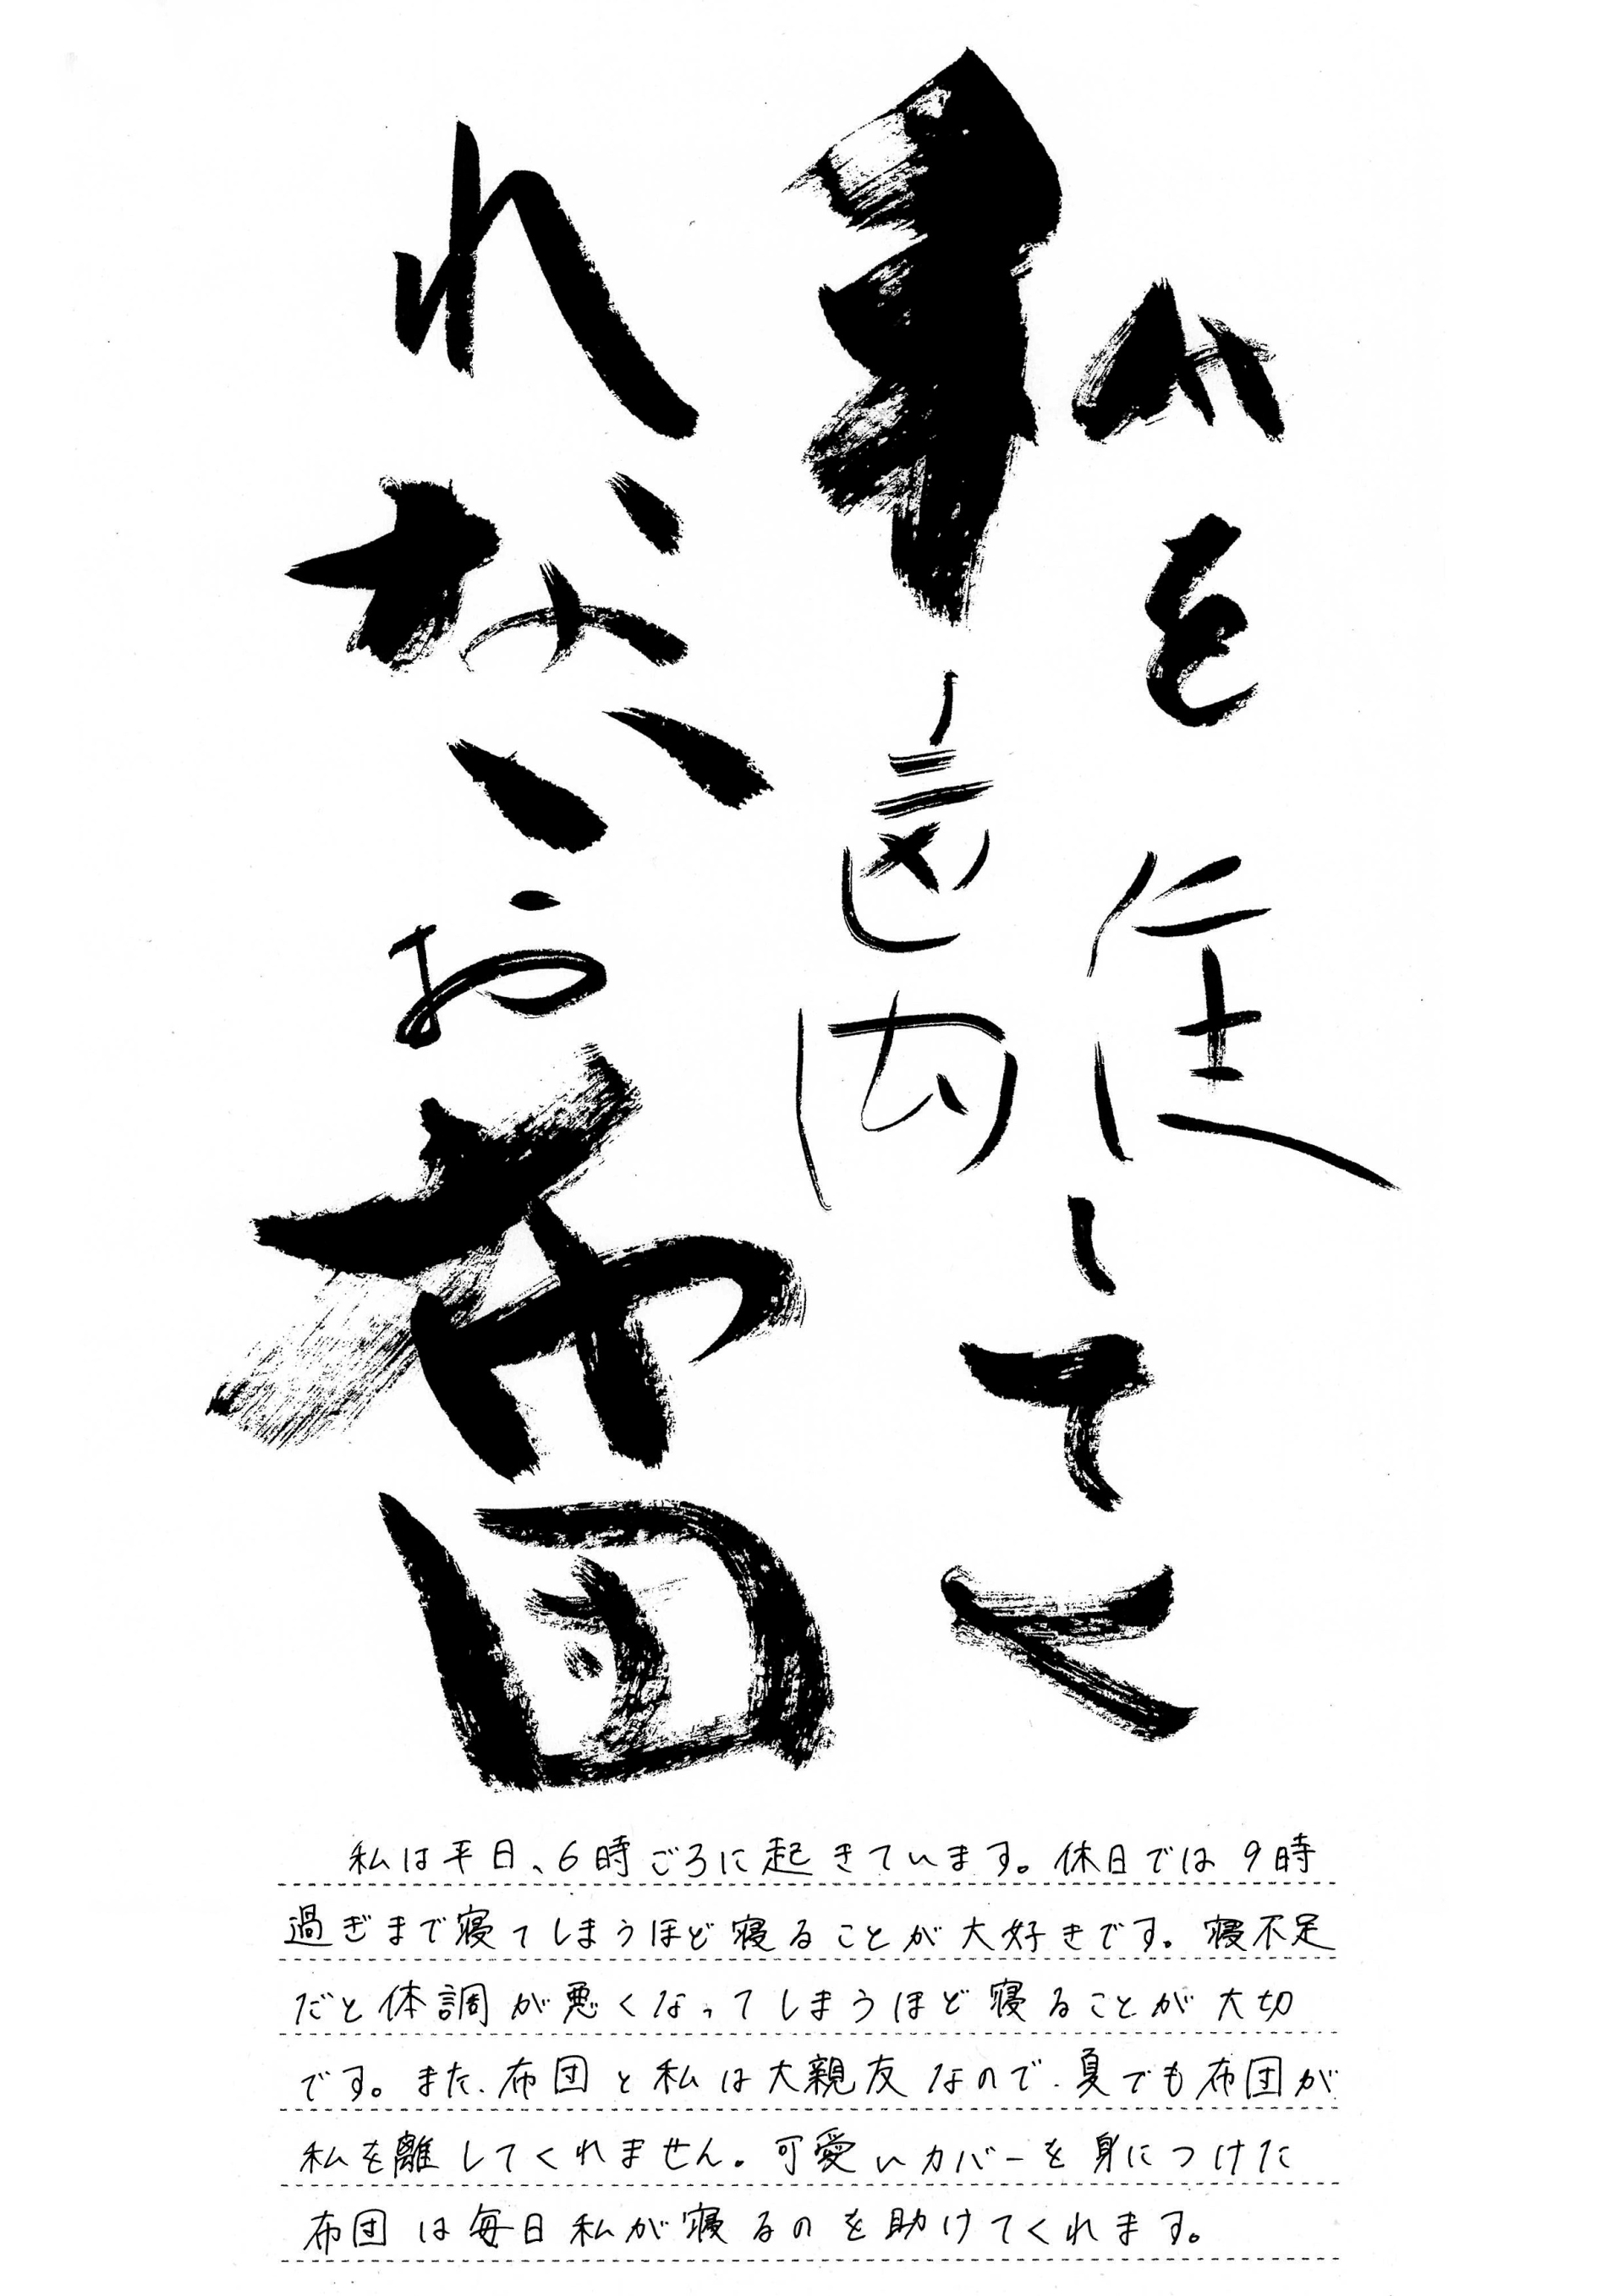 私を離してく
れないお布団
私は平日、6時ごろに起きています。休日では9時
過ぎまで寝てしまうほど寝ることが大好きです。寝不足
だと体調が悪くなってしまうほど寝ることが大切
です。また、布団と私は大親友なので、夏でも布団が
私を離してくれません。可愛いカバーを身につけた
布団は毎日私が寝るのを助けてくれます。